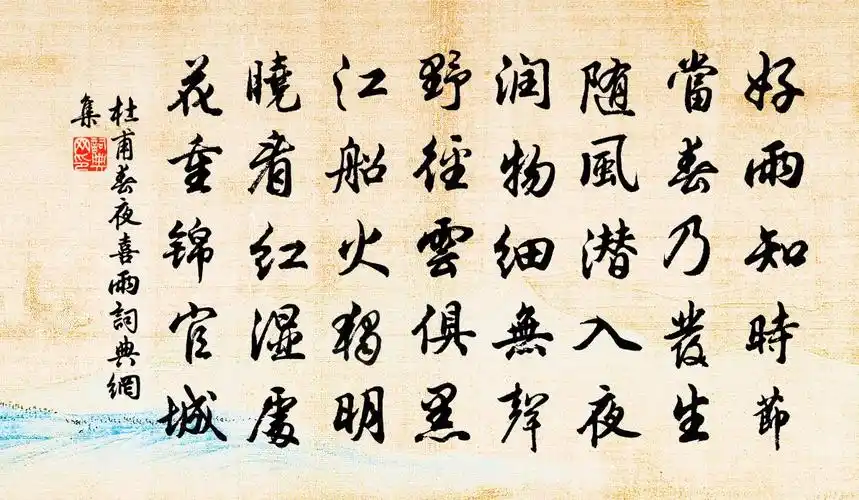 好雨知時節
當春乃發生
随風潜入夜
润物细無聲
野徑雲俱黑
江船火獨明
曉看红濕處
花重锦官城
杜甫春夜喜雨詞典網
集
詞典
网印